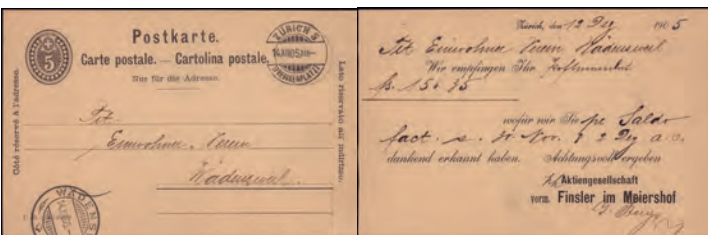 Postkarte.
Carte postale. — Cartolina postale.
Nur für die Adresse.
5
ZÜRICH 5
Côté réservé à l'adresse.
Lato riservato all'indirizzo.
Tit.
Einwohner Verein
Wädenswil
WÄDENSW
Zürich, den 12 Dez 1905
Tit Einwohner Verein Wädenswil
Wir empfingen Ihr
wofür wir Sie pr Saldo
fact. v. 30 Nov. & 2 Dez a. c.
dankend erkannt haben. Achtungsvoll ergeben
Aktiengesellschaft
vorm. Finsler im Meiershof